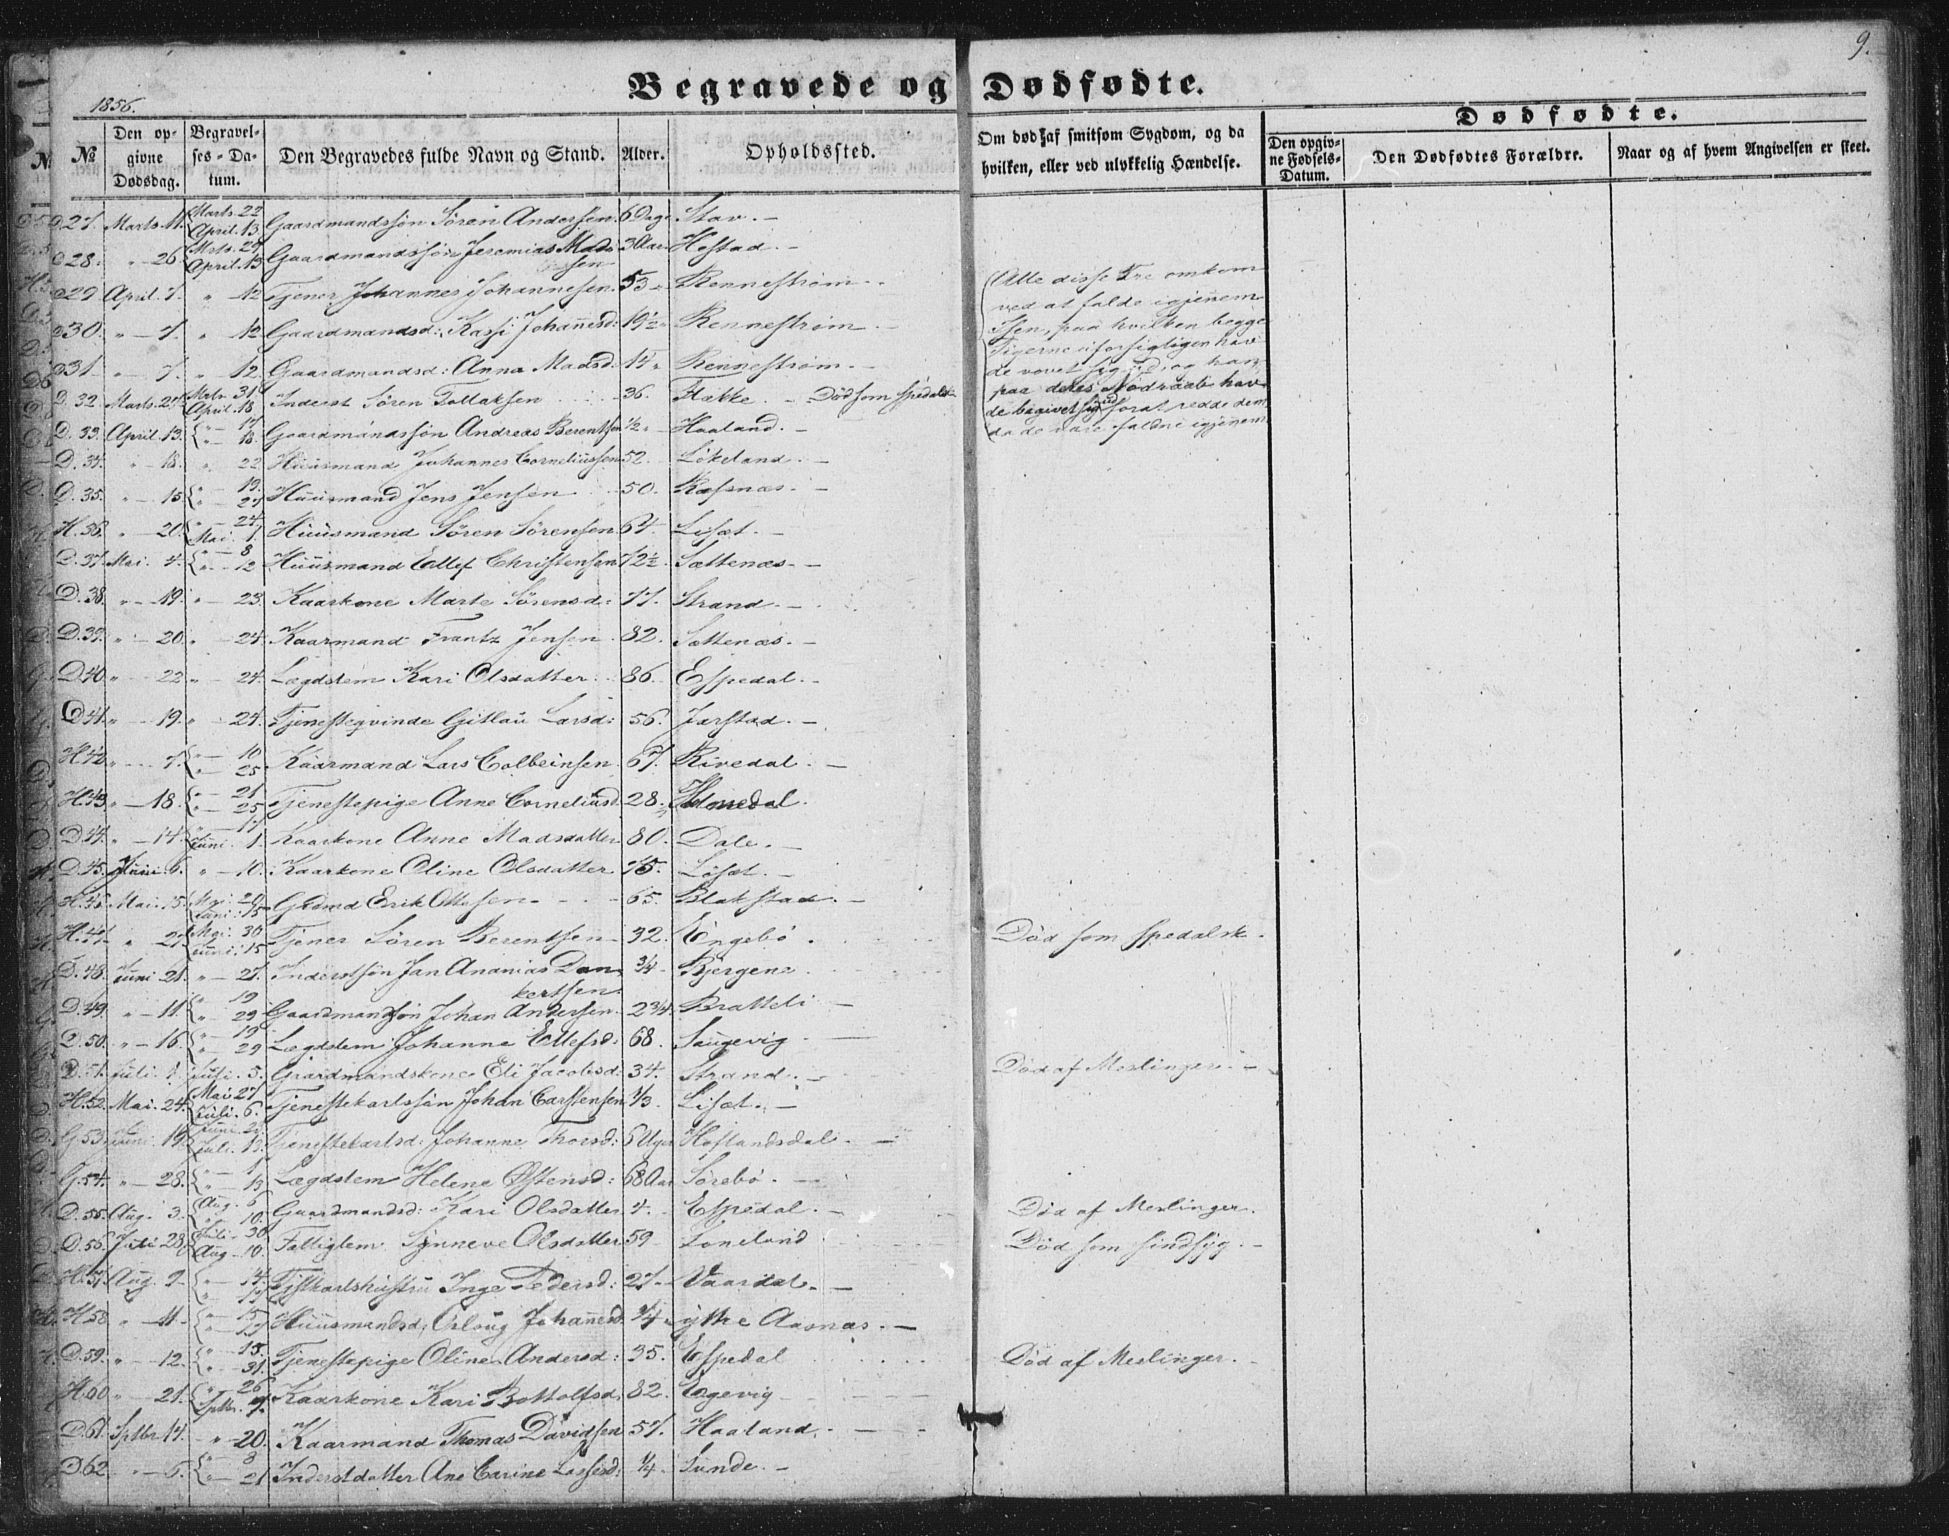 9.
Begravede og Dødfødte.
1856.
№
Den opgivne Dødsdag.
Begravelses-Datum.
Den Begravedes fulde Navn og Stand.
Alder.
Opholdssted.
Om død af smitsom Sygdom, og da hvilken, eller ved ulykkelig Hændelse.
Dødfødte.
Den opgivne Fødsels-Datum.
Den Dødfødtes Forældre.
Naar og af hvem Angivelsen er skeet.
27. Marts 11. Marts 22 April 13 Gaardmandssøn Søren Andersen 6 Dage Stav.
28. " 26. Mrts. 29 April 13 Gaardmandssøn Jeremias Madssen 3 Aar Hestad.
29 April 7. " 12 Tjener Johannes Johannesen. 53 Rennestrøm
30. " 7. " 12 Gaardmandsd: Kasi Johannesd: 19½ Rennestrøm
31 " 7. " 12 Gaardmandsd: Anna Madsd: 14 Rennestrøm
(Alle disse Tre omkom
ved at falde igjennem
Isen, paa hvilken begge
Pigerne uforsigtigen hav
de vovet sig ud, og han
paa deres Nødraab hav
de begivet sig ud forat redde dem
da de vare faldne igjennem
D. 32 Marts Mrts. 31 April 18 Inderst Søren Tollaksen 36. Flekke. Død som spedalsk
D. 33. April 13. " 17 " 18. Gaardmandssøn Andreas Berentsen ½ Haaland.
D. 34. " 18. " 22 Huusmand Johannes Corneliussen 52. Løkeland.
D. 35. " 15 " 19. " 27 Huusmand Jens Jensen 50. Ræfsnæs.
H. 36. " 20. " 24. Mai. 1. Huusmand Søren Sørensen 64. Liset.
D. 37. Mai. 4. " 8 " 12 Huusmand Ellef Christensen 72½ Sættenæs.
D. 38. " 19. " 23. Kaarkone Marte Sørensd: 77. Strand.
D. 39. " 20. " 24. Kaarmand Frantz Jensen 82. Sættenæs.
D. 40. " 22 " 24. Lægdslem Kari Olsdatter 86. Espedal.
D. 41. " 19. " 24. Tjenesteqvinde Gitlau Larsd: 56. Jarstad.
H. 42 " 7. " 10 " 25 Kaarmand Lars Colbeinsen 67. Rivedal.
H. 43. " 18. " 21 " 25 Tjenestepige Anne Corneliusd 28. Holmedal.
D. 44. " 14. " 17 Juni. 1. Kaarkone Anne Madsdatter 80. Dale.
D. 45. Juni 6. " 10. Kaarkone Oline Olsdatter 75. Løset.
H. 46 Mai. 15. Juni. 15 Gdmd Erik Ottesen 65. Blakstad.
H. 47. " 27. Mai. 30 Juni. 15 Tjener Søren Berentsen 32. Engebø. Død som spedalsk.
D. 48. Juni 21. " 27. Inderstsøn Jan Ananias Dankertsen. ¾ Bjergene
D. 49. " 11. " 19 " 29 Gaardmandssøn Johan Andersen. 2¾ Bratteli
D. 50. " 16. " 19 " 29 Lægdslem Johanne Ellefsd: 68. Saugevig
D. 51. Juli 1. Juli. 5. Gaardmandskone Eli Jacobsd: 34. Strand. Død af Meslinger.
H. 52. Mai. 24. Mai 27 Juli. 6. Tjenestekarlssøn Johan Carstensen ⅓ Liset.
G. 53. Juni 19. Juli. 13. Tjenestekarlsd: Johanne Thorsd: 6 Uger Høflandsdal.
G. 54. " 28. " 1 " 13 Lægdslem Helene Østensd: 68 Aar Sørebø.
D. 55. Aug. 3. Aug. 6 " 10. Gaardmandsd: Kari Olsdatter 4. Espedal. Død af Meslinger.
D. 56. Juli 28. Juli. 30 Aug 10. Fattiglem Synneve Olsdatter 59 Loneland Død som sindsyg.
H. 57. Aug. 9 " 14. " 17 Tjstkarlshustru Inge Pedersd: 27. Vaardal.
H. 58 " 11. " 15 " 17 Huusmandsd: Orloug Johannesd. ¼ ytre Aasnæs.
D. 59. " 12. " 15. " 31. Tjenestepige Oline Andersd: 35. Espedal Død af Meslinger.
H. 60 " 21. " 26 Sptbr. 7. Kaarkone Kari Bottolfsd. 82. Engevig
D. 61. Sptbr 14. " 20. Kaarmand Thomas Davidsen 57. Haaland.
D. 62 " 5. " 8 " 21 Inderstdatter Ane Carine Lassesd: ¼ Sunde.